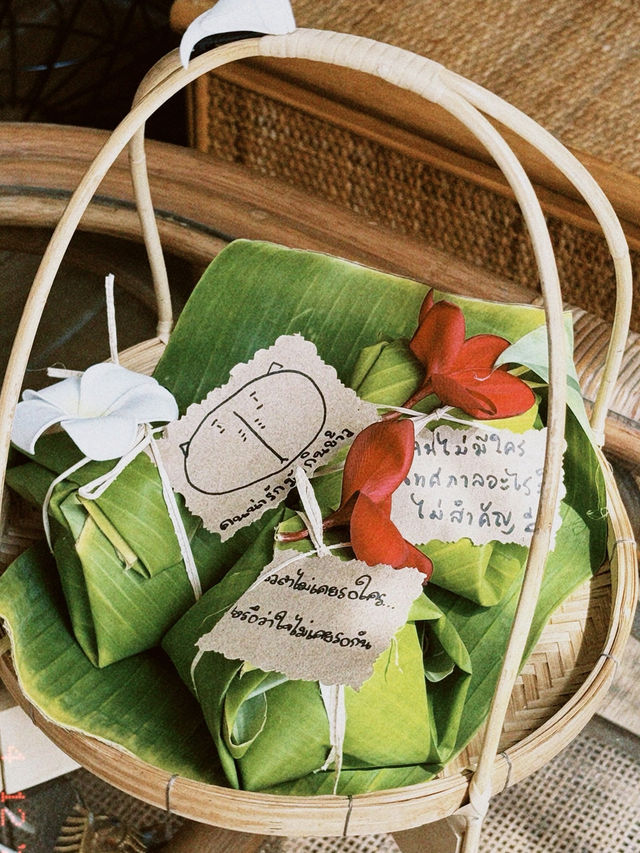 คนน่ารักเขากินข้าว
คนไม่มีใคร
เทศกาลอะไรก็
ไม่สำคัญ
เวลาไม่เคยรอใคร...
หรือว่าใจไม่เคยรอกัน